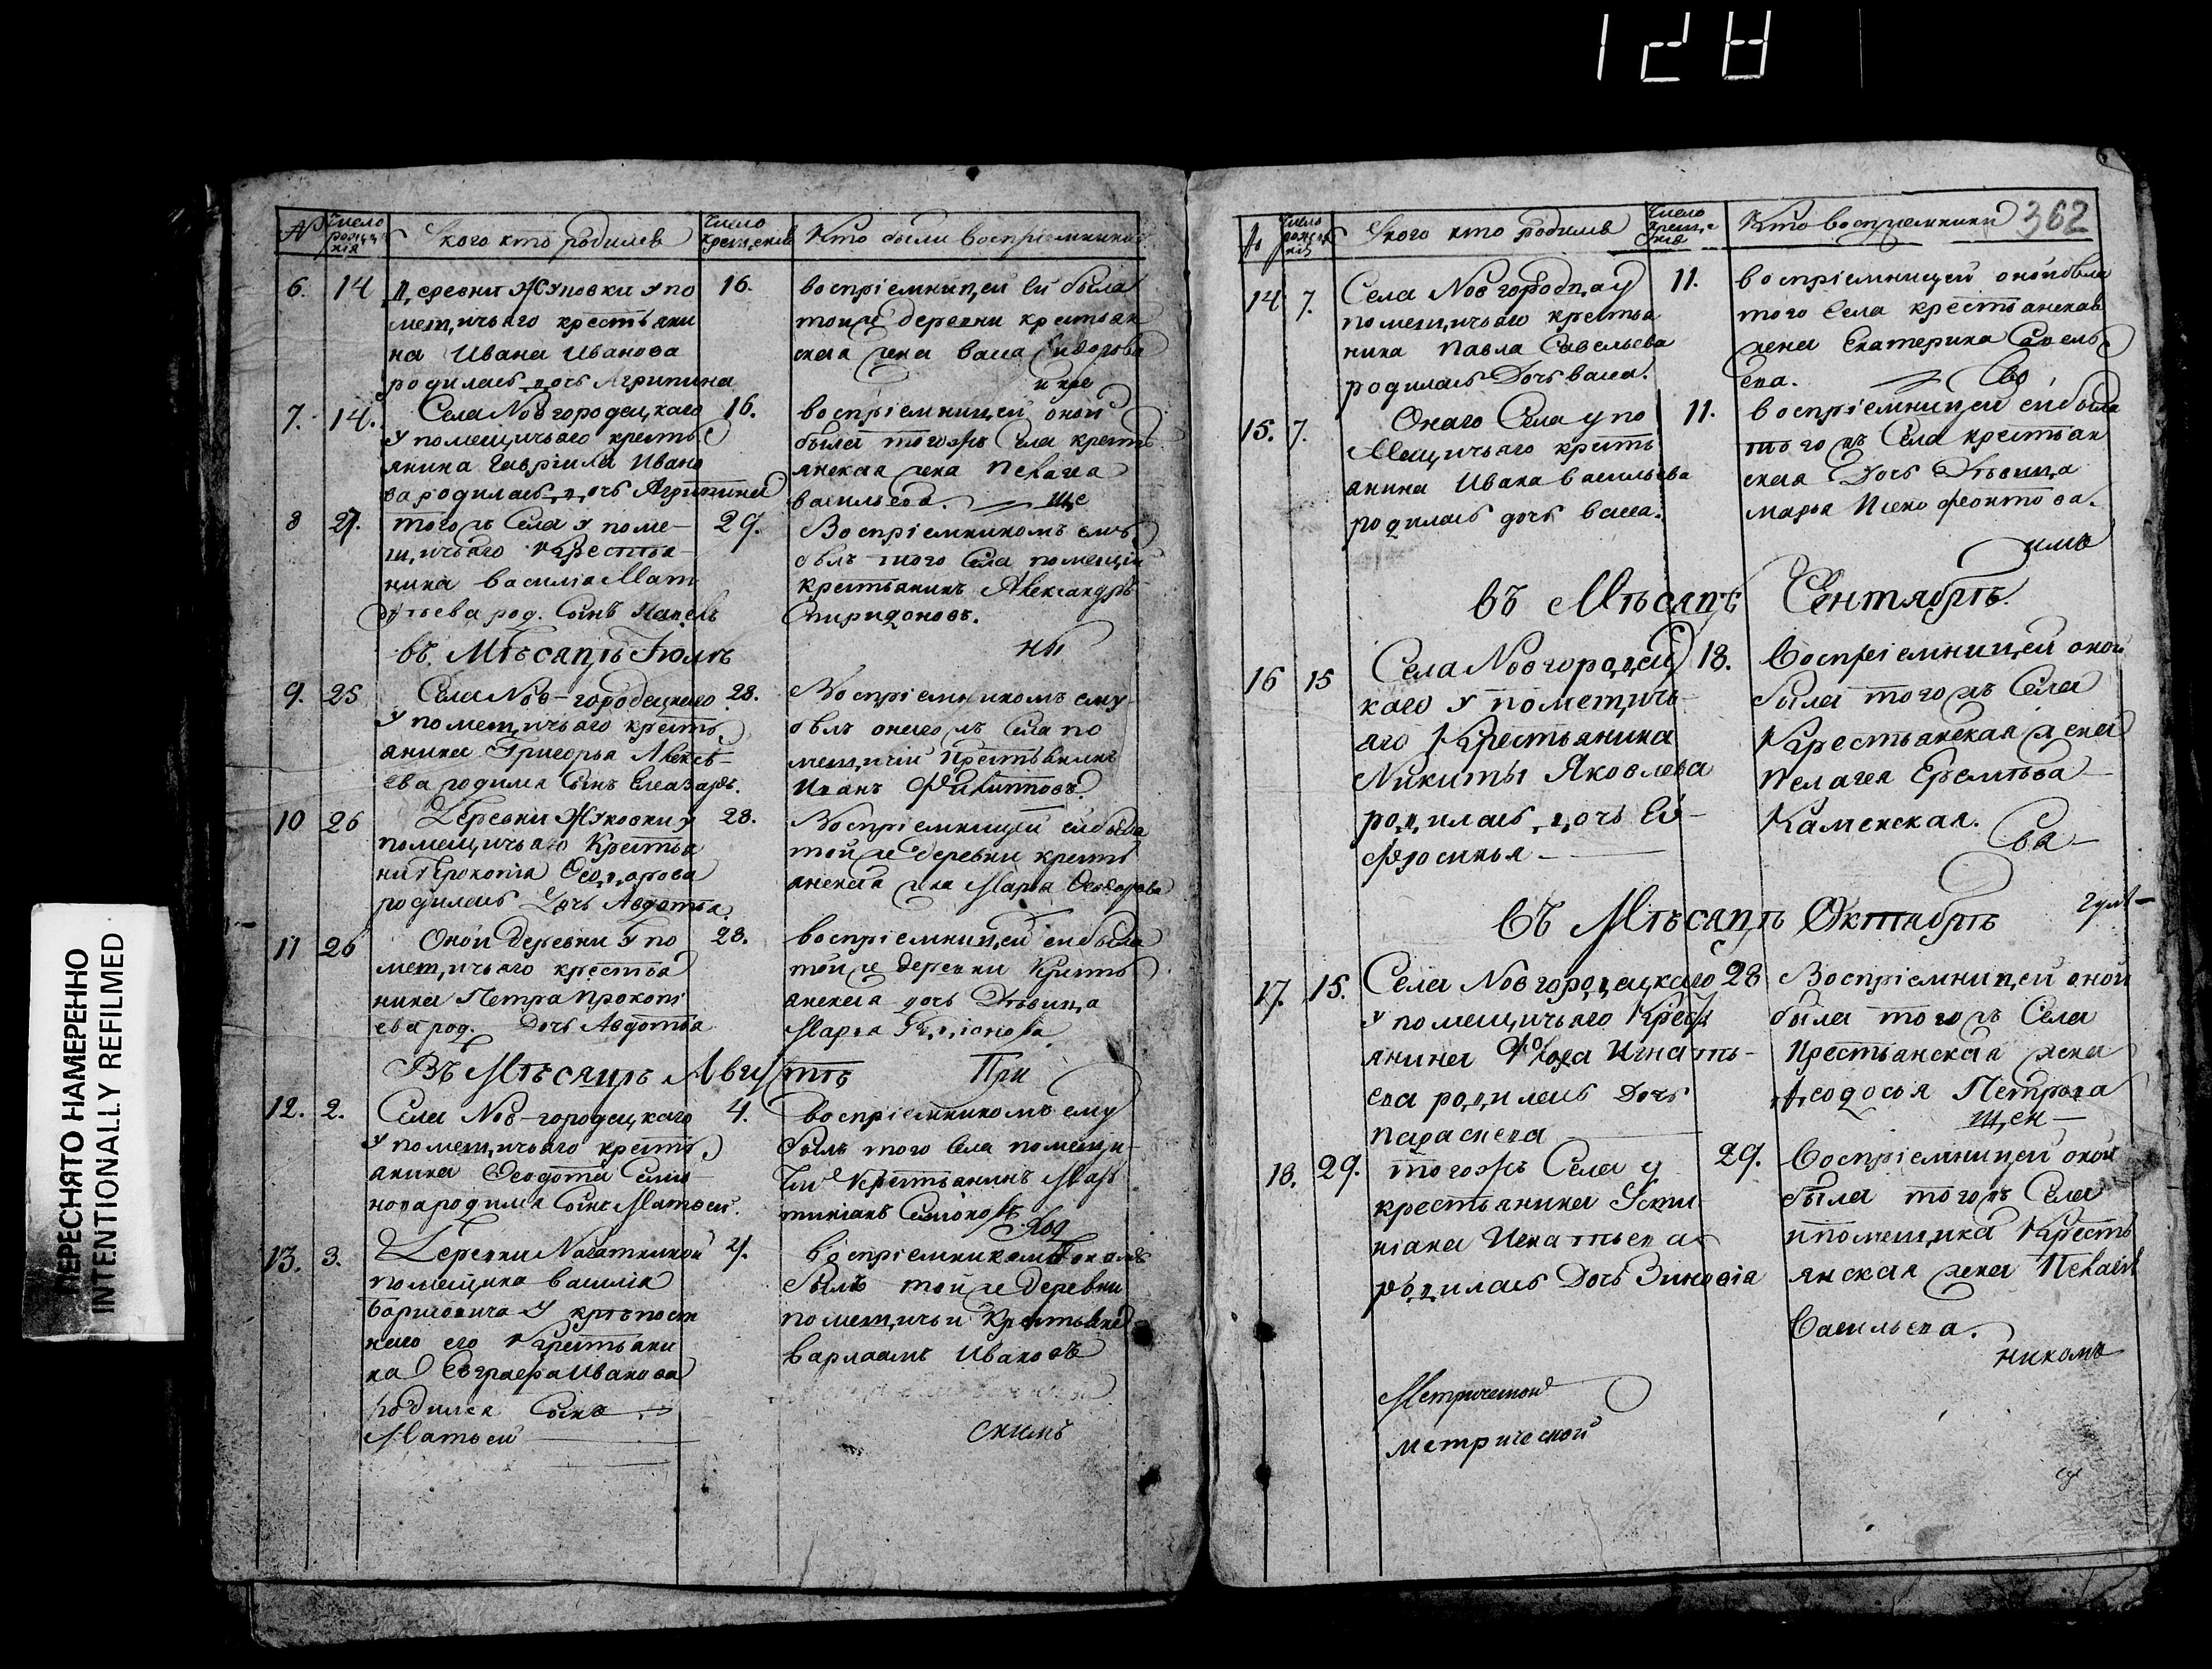 128
ПЕРЕСНЯТО НАМЕРЕННО
INTENTIONALLY REFILMED
№
Число
рожд
нія
У кого кто родился
Число
крещенія
Кто были воспріемники
6. 14
деревни Жуковки у по
мещичьяго крестьяни
на Ивана Иванова
родилась дочь Агрипина
16.
воспріемницей ей была
той же деревни крестьян
ская жена Васса Сидорова
7. 14.
Села Новгородецкаго
у помещичьяго кресть
янина Гавріила Ивано
ва родилась дочь Агрипина
16.
воспріемницей оной
была тогожъ Села кресть
янская жена Пелагея
васильева. ще
8 27.
тогожъ Села у поме-
щичьяго Крестья-
нина Василія Мат
вѣева род. Сынъ Павелъ
29.
Воспріемникомъ ему
былъ того Села помещичій
крестьянинъ Александръ
Спиридоновъ.
ны
въ Мѣсяцѣ Іюлѣ
9. 25
Села Нов-городецкаго
у помещичьяго кресть
янина Григорья Алексѣ-
ева родился Сынъ Елеазаръ.
28.
Воспріемникомъ ему
былъ онаго жъ Села по
мещичій Крестьянинъ
Иванъ Филипповъ.
10 26
Деревни Жуковки у
помещичьяго Крестья
ни Прокопія Ѳеодорова
родилась Дочь Авдотья.
28.
Воспріемницей ей была
той же деревни кресть
янская жена Марья Ѳеодорова
11 26
Оной Деревни у по
мещичьяго крестья
нина Петра Прокопі
ева род. Дочь Авдотья
28.
воспріемницей ей была
той же деревни Кресть
янская дочь Дѣвица
Марья
Въ Мѣсяцѣ Августѣ
При
12. 2.
Села Нов-городецкаго
у помещичьяго кресть
янина Ѳеодота Симо
нова родился Сынъ Матвей.
4.
воспріемникомъ ему
былъ того Села помещи-
чій Крестьянинъ Мар
тиніанъ Симоновъ
ход
13. 3.
Деревни
помещика Василія
Борисовича у крѣпост
наго его Крестьяни
на Евграфа Иванова
родился Сынъ
Матвей
4.
воспріемникомъ оному
былъ той же Деревни
помещичьи Крестьянинъ
Варлаамъ Ивановъ
скимъ
№
Число
рожде
нія
У кого кто родился
Число
креще
нія
Кто воспріемники
362
14 7.
Села Новгородцау
помещичьяго крестья
нина Павла Савельева
родилась Дочь Васса.
11.
воспріемницей оной была
того Села крестьянская
жена Екатерина Савель
ева. во
15. 7.
Онаго Села у по
мещичьяго кресть
янина Ивана Васильева
родилась дочь Васса.
11.
воспріемницей ей была
того жъ Села крестьян
ская Дочь Дѣвица
марья Ксенофонтова.
имъ
въ Мѣсяцѣ Сентябрѣ.
16 15
Села Новгородец
каго у помещичь-
яго Крестьянина
Никиты Яковлева
родилась дочь Ев-
фросинья
18.
Воспріемницей оной
была того жъ Села
Крестьянская жена
Пелагея Еремѣева
Каменская.
Ва-
въ Мѣсяцѣ Октябрѣ
17. 15.
Села Новгородецкаго
у помещичьяго Крест
янина Игнать-
ева родилась Дочь
Параскева
28
Воспріемницей оной
была того жъ Села
Крестьянская жена
Ѳеодосья Петрова
щен
18. 29.
тогожъ Села у
крестьянина Усти
ніана Игнатьева
родилась Дочь Зиновія
29.
Воспріемницей оной
была того жъ Села
помещика Кресть
янская жена Пелагея
Васильева.
никомъ
Метрической
метрической